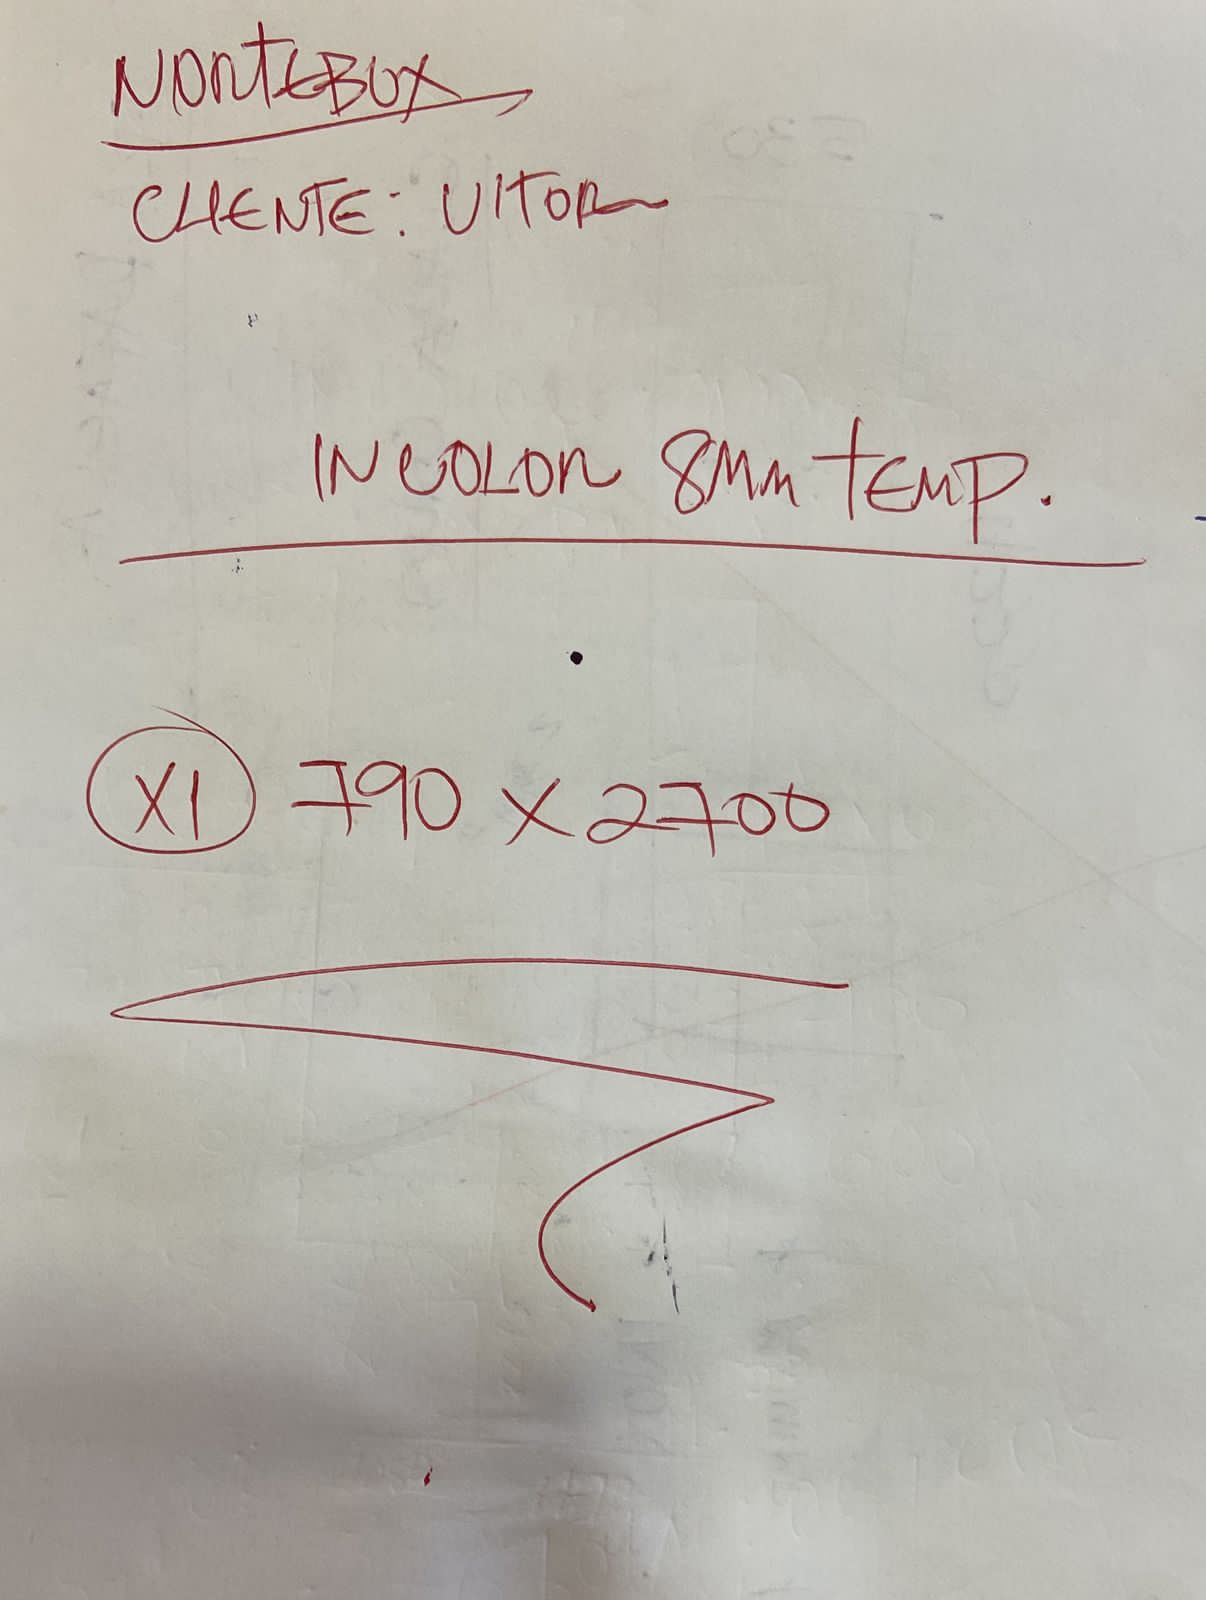 NORTEBOX
CLIENTE: VITOR
INCOLOR 8MM TEMP.
X1 790 X 2700